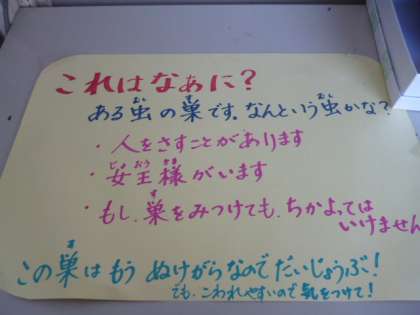 これはなぁに?
ある虫の巣です。なんという虫かな?
・人をさすことがあります
・女王様がいます
・もし、巣をみつけても、ちかよっては
いけません
この巣はもう ぬけがらなので だいじょうぶ!
でも、こわれやすいので気をつけて!